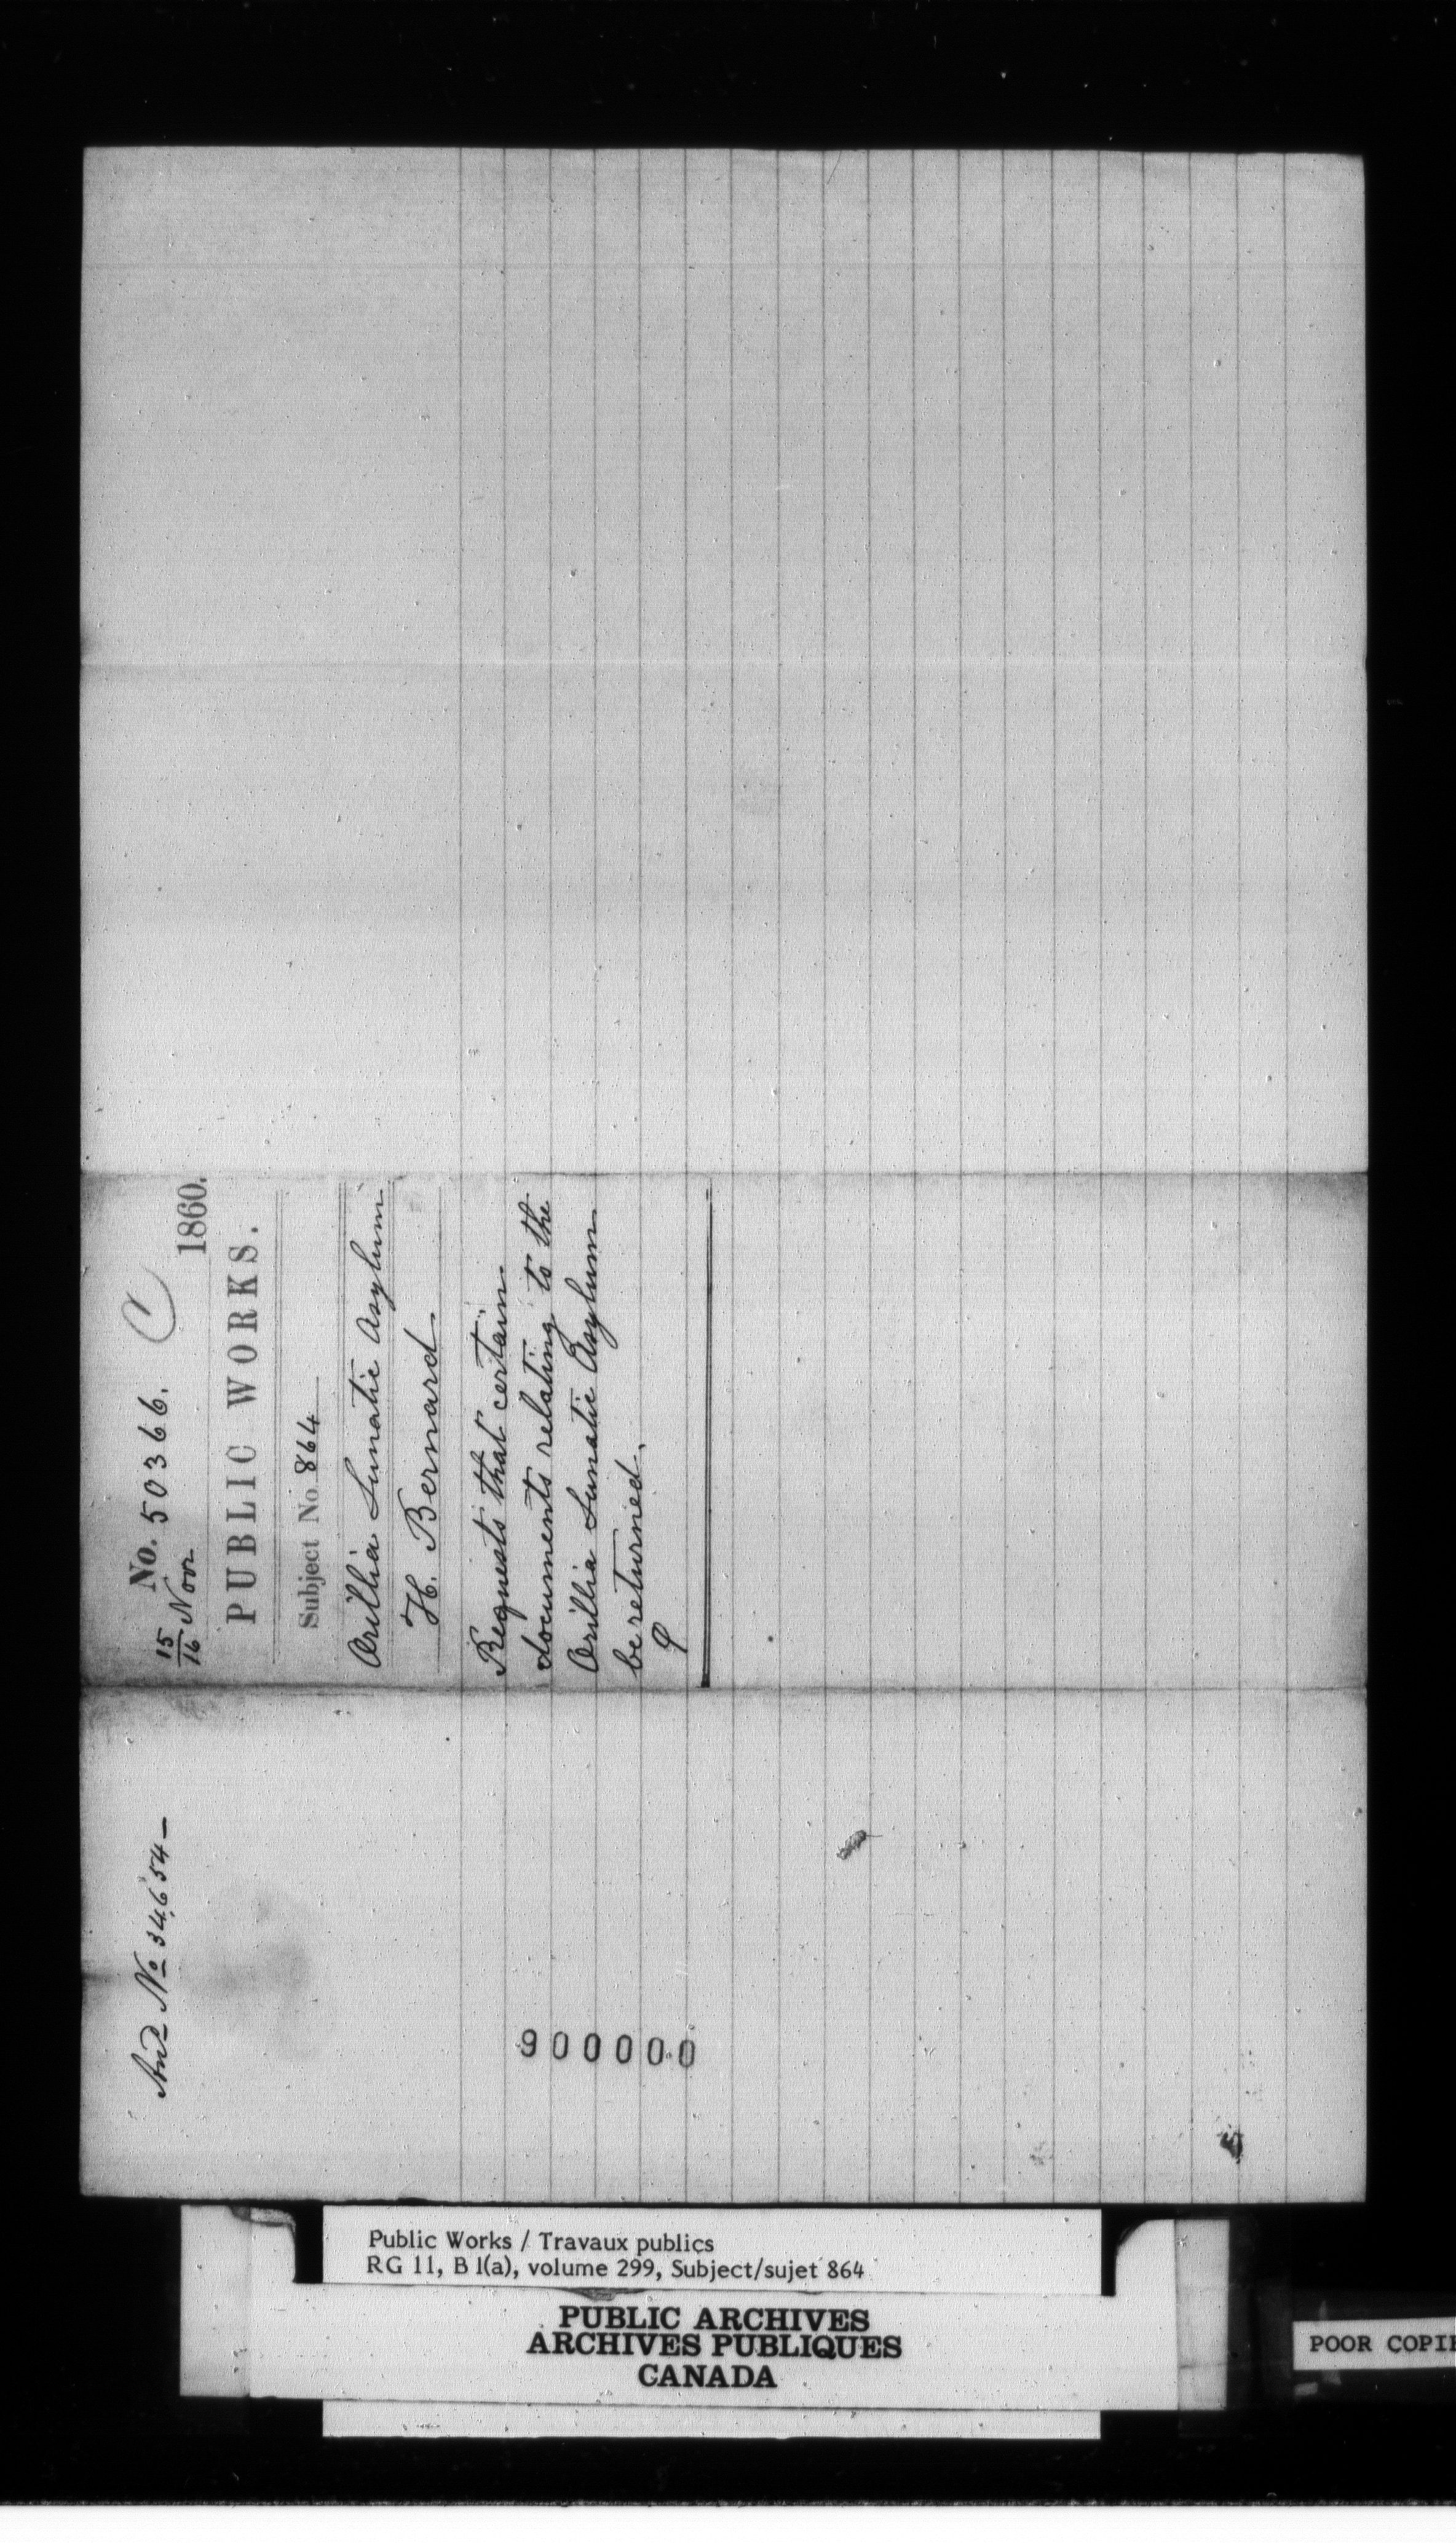 No. 50366.
15/16 Novr 1860.
PUBLIC WORKS.
Subject No. 864
Orillia Lunatic Asylum
H. Bernard
Requests that certain
documents relating to the
Orillia Lunatic Asylum
be returned.
Ansd No 34,654 —
900000
Public Works / Travaux publics
RG 11, B 1(a), volume 299, Subject/sujet 864
PUBLIC ARCHIVES
ARCHIVES PUBLIQUES
CANADA
POOR COPIE